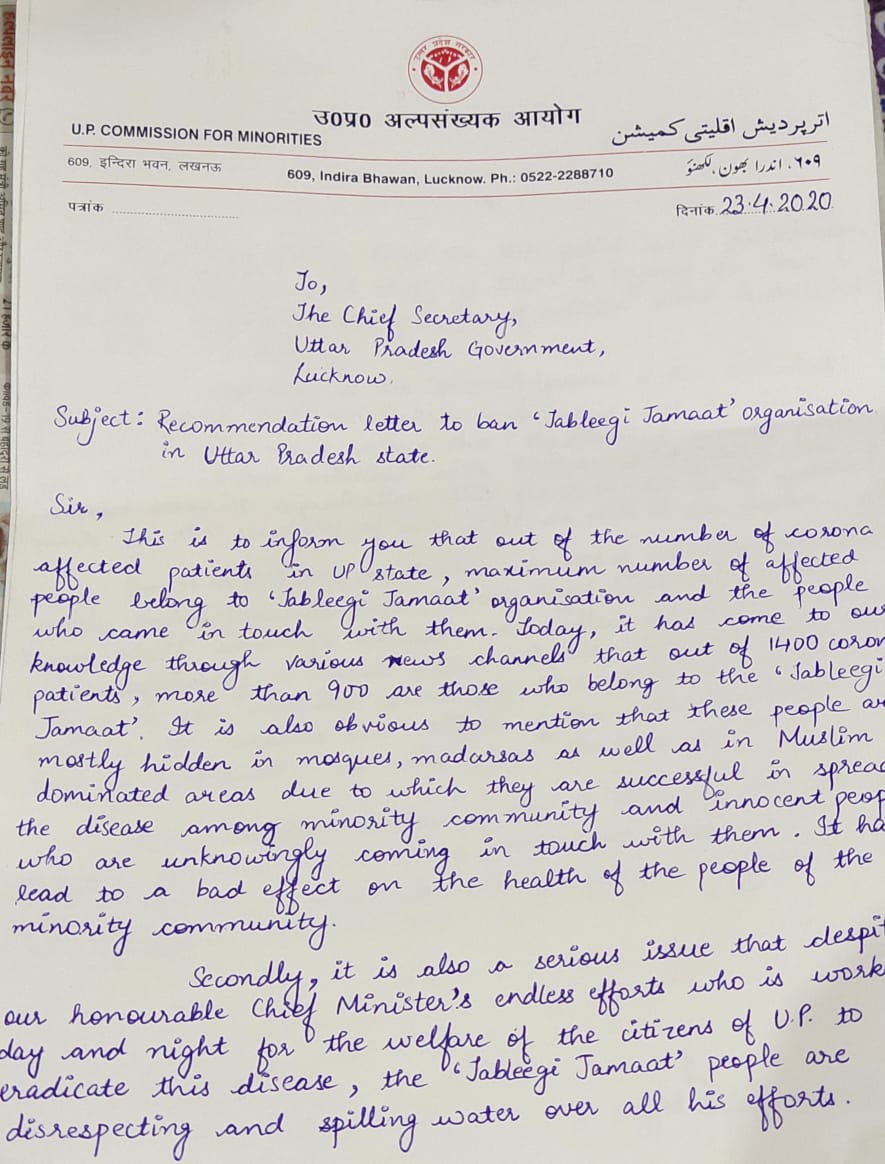 उत्तर प्रदेश सरकार
उ०प्र० अल्पसंख्यक आयोग
U.P. COMMISSION FOR MINORITIES
اتر پردیش اقلیتی کمیشن
609, इन्दिरा भवन, लखनऊ
609, Indira Bhawan, Lucknow. Ph.: 0522-2288710
۶۰۹، اندرا بھون، لکھنؤ
पत्रांक
दिनांक 23.4.2020
To,
The Chief Secretary,
Uttar Pradesh Government,
Lucknow.
Subject: Recommendation letter to ban 'Tableegi Jamaat' organisation
in Uttar Pradesh state.
Sir,
This is to inform you that out of the number of corona
affected patients in UP state, maximum number of affected
people belong to 'Tableegi Jamaat' organisation and the people
who came in touch with them. Today, it has come to our
knowledge through various news channels that out of 1400 coron
patients, more than 900 are those who belong to the 'Tableegi
Jamaat'. It is also obvious to mention that these people ar
mostly hidden in mosques, madarsas as well as in Muslim
dominated areas due to which they are successful in spread
the disease among minority community and innocent peop
who are unknowingly coming in touch with them. It ha
lead to a bad effect on the health of the people of the
minority community.
Secondly, it is also a serious issue that despit
our honourable Chief Minister's endless efforts who is work
day and night for the welfare of the citizens of U.P. to
eradicate this disease, the 'Tableegi Jamaat' people are
disrespecting and spilling water over all his efforts.